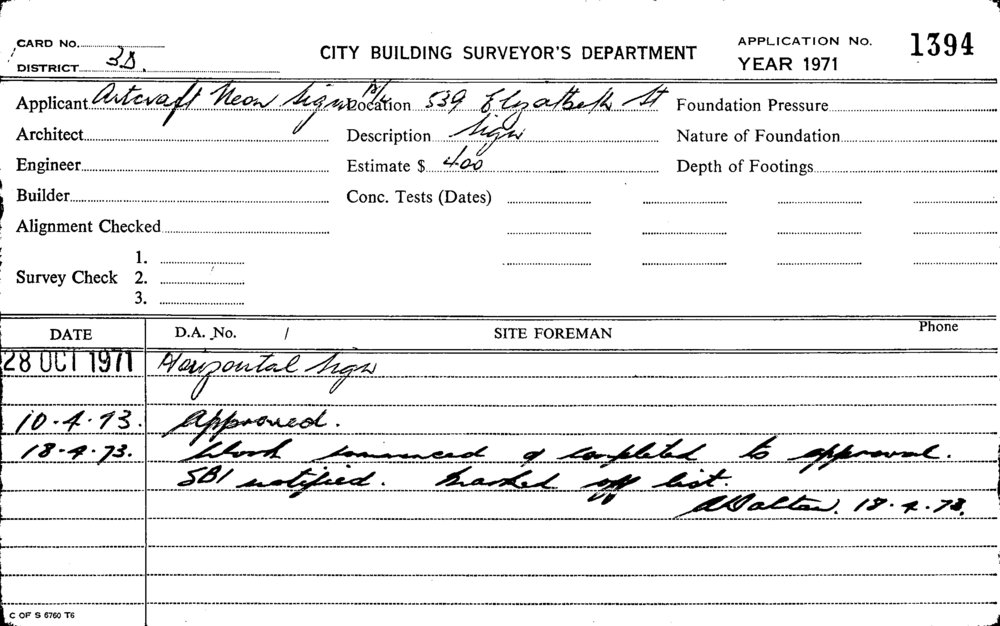 CARD No.
DISTRICT 3D.
CITY BUILDING SURVEYOR'S DEPARTMENT
APPLICATION No. 1394
YEAR 1971
Applicant Artcraft Neon Signs P/L Location 539 Elizabeth St Foundation Pressure
Architect Description Sign Nature of Foundation
Engineer Estimate $ 400 Depth of Footings
Builder Conc. Tests (Dates)
Alignment Checked
1.
Survey Check 2.
3.
DATE D.A. No. / SITE FOREMAN Phone
28 OCT 1971 Horizontal Sign
10.4.73. Approved.
18.4.73. Work commenced & completed to approval.
SBI notified. Marked off list.
ADalton. 18.4.73.
C OF S 6760 T6